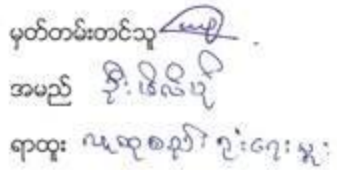 မှတ်တမ်းတင်သူ
အမည် ဦးဖိလိပ်
ရာထူး လူထုစည်းရုံးရေးမှူး